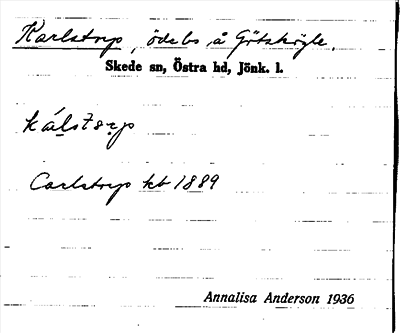 Karlstorp, ödebs å Götskögle.
Skede sn, Östra hd, Jönk. l.
kálstɜrp
Carlstorp kb 1889
Annalisa Anderson 1936